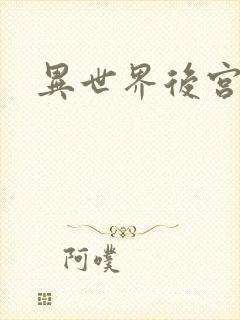 異世界後宮
阿噗